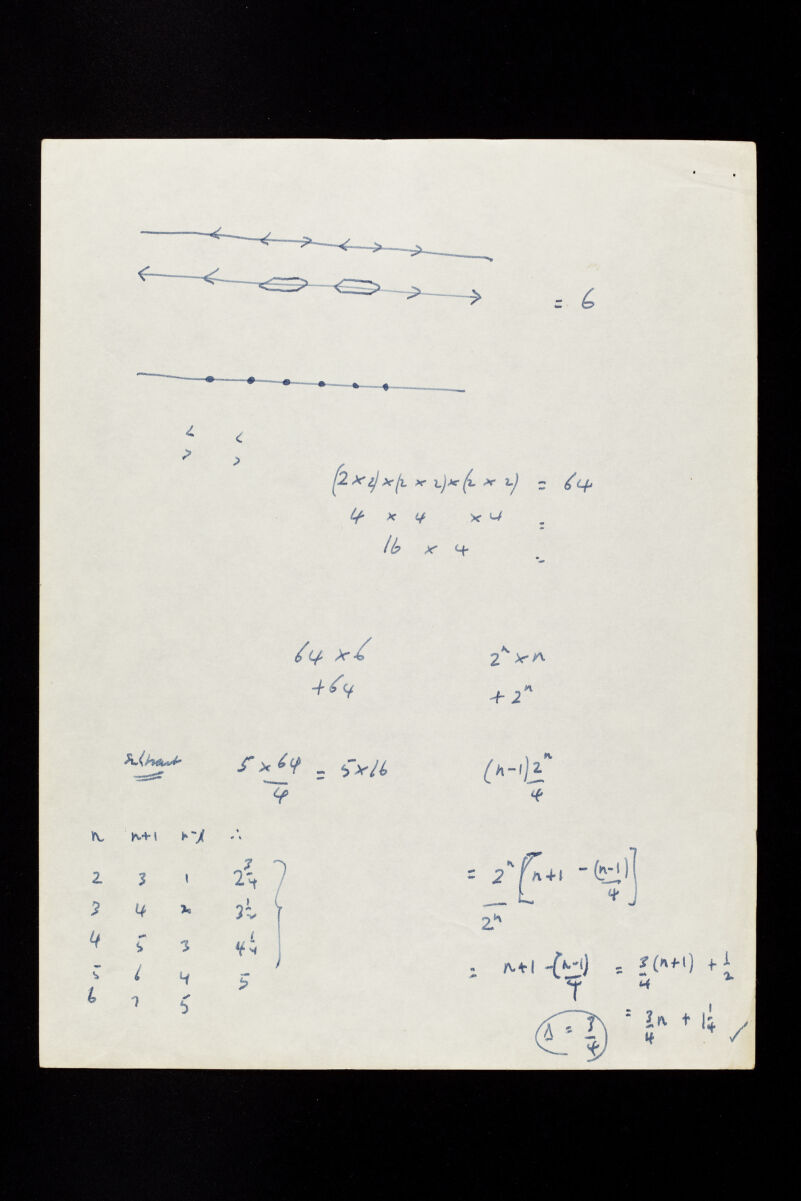 = 6
< <
> >
(2×2)×(2×2)×(2×2) = 64
4 × 4 ×4 =
16 × 4 =
64 ×6 2ⁿ×n
+64 + 2ⁿ
Subtract 5 ×64/4 = 5×16 (n-1)2ⁿ/4
n n+1 n-1 ∴
2 3 1 2 3/4
3 4 2 3 1/2
4 5 3 4 1/4
5 6 4 5
6 7 5
= 2ⁿ/2ⁿ [n+1 - (n-1)/4]
= n+1 -(n-1)/4 = 3/4(n+1) + 1/2
= 3/4 n + 1 1/4 ✓
Δ = 3/4